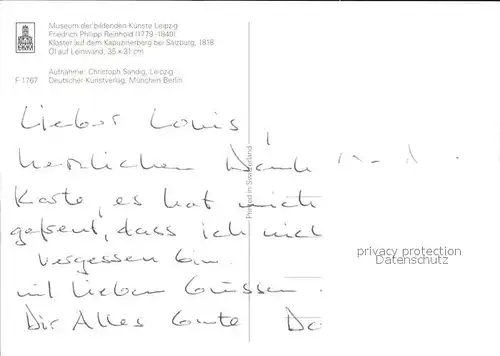 Museum der bildenden Künste Leipzig
Friedrich Philipp Reinhold (1779-1840)
Kloster auf dem Kapuzinerberg bei Salzburg, 1818
Öl auf Leinwand, 35 x 31 cm
Aufnahme: Christoph Sandig, Leipzig
F 1767 Deutscher Kunstverlag, München Berlin
Printed in Switzerland
Lieber Louis,
herzlichen Dank
Karte, es hat mich
gefreut, dass ich nich
vergessen bin.
mit lieben Grüssen
Dir Alles Gute
privacy protection
Datenschutz